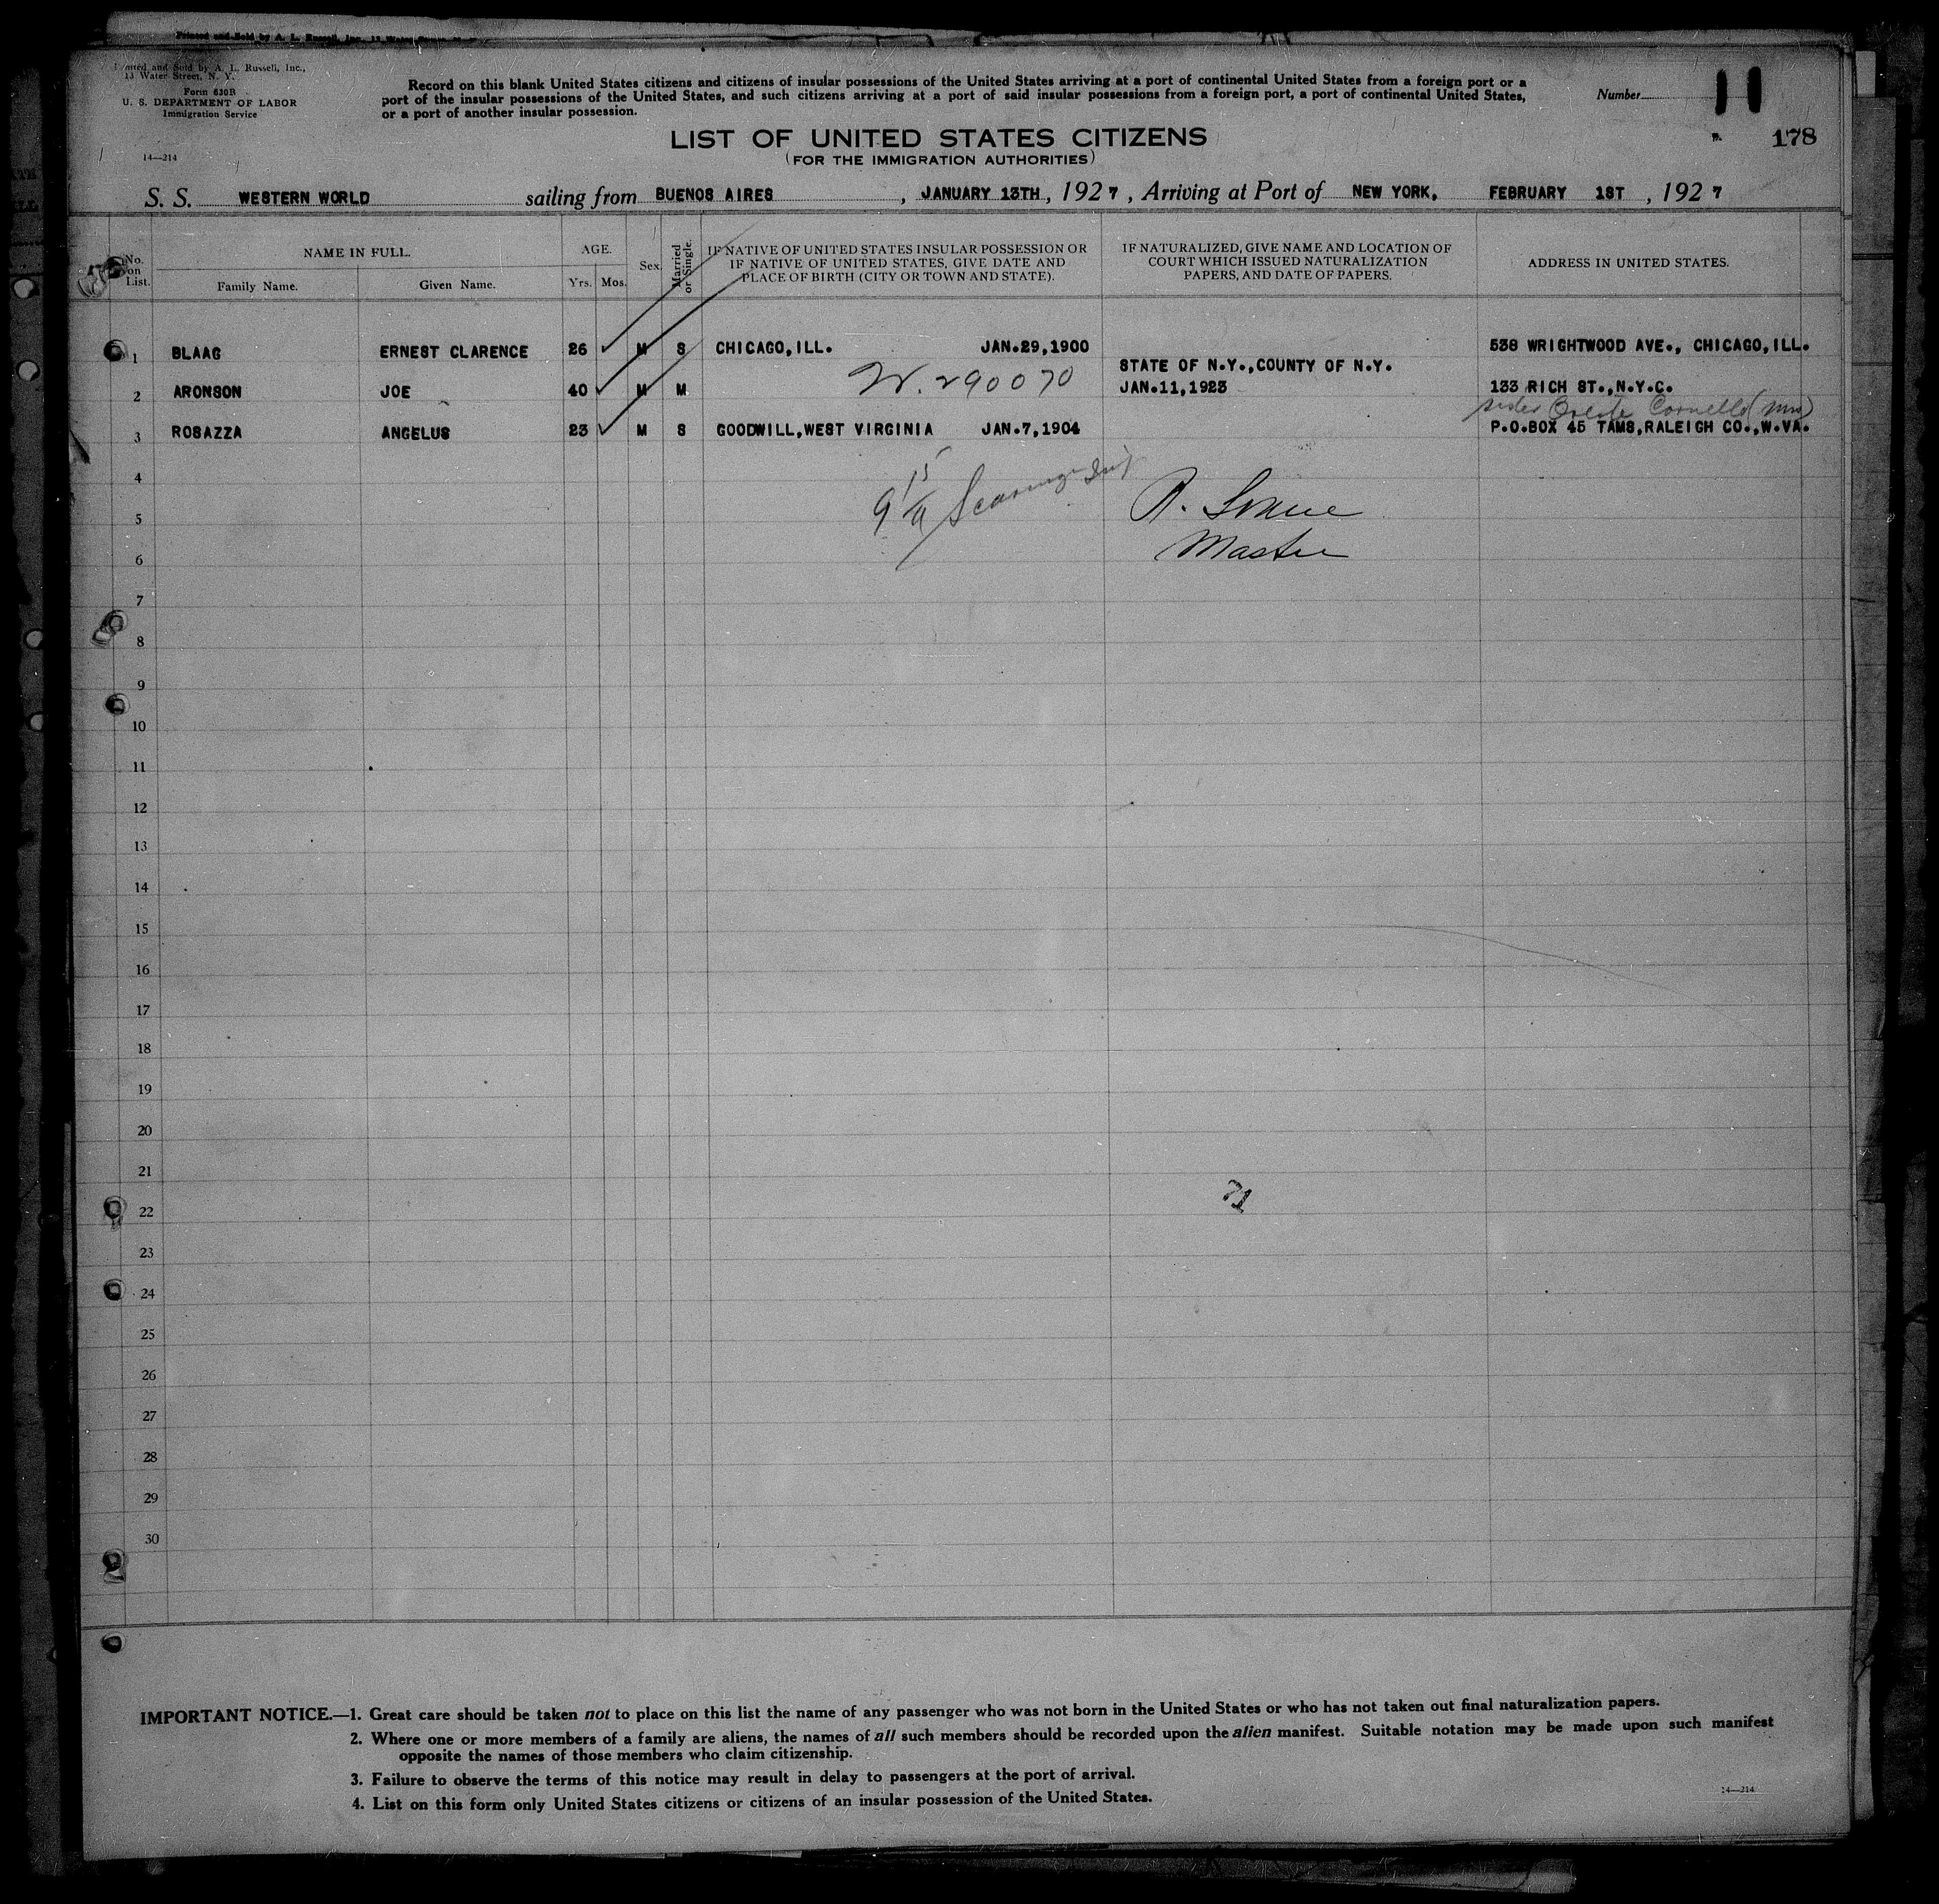 Printed and Sold by A. L. Russell, Inc.,
Printed and Sold by A. L. Russell, Inc.,
13 Water Street, N. Y.
Form 630B
U. S. DEPARTMENT OF LABOR
Immigration Service
14—214
Record on this blank United States citizens and citizens of insular possessions of the United States arriving at a port of continental United States from a foreign port or a
port of the insular possessions of the United States, and such citizens arriving at a port of said insular possessions from a foreign port, a port of continental United States,
or a port of another insular possession.
Number 11
178
LIST OF UNITED STATES CITIZENS
(FOR THE IMMIGRATION AUTHORITIES)
S. S. WESTERN WORLD sailing from BUENOS AIRES, JANUARY 13TH, 1927, Arriving at Port of NEW YORK, FEBRUARY 1ST, 1927
No. on List. NAME IN FULL. Family Name. Given Name. AGE. Yrs. Mos. Sex. Married or Single. IF NATIVE OF UNITED STATES INSULAR POSSESSION OR IF NATIVE OF UNITED STATES, GIVE DATE AND PLACE OF BIRTH (CITY OR TOWN AND STATE). IF NATURALIZED, GIVE NAME AND LOCATION OF COURT WHICH ISSUED NATURALIZATION PAPERS, AND DATE OF PAPERS. ADDRESS IN UNITED STATES.
1 BLAAG ERNEST CLARENCE 26 M S CHICAGO, ILL. JAN.29,1900 538 WRIGHTWOOD AVE., CHICAGO, ILL.
STATE OF N.Y., COUNTY OF N.Y.
2 ARONSON JOE 40 M M W. 290070 JAN.11,1923 133 RICH ST., N.Y.C.
sister Cornello (Mrs)
3 ROSAZZA ANGELUS 23 M S GOODWILL, WEST VIRGINIA JAN.7,1904 P.O.BOX 45 TAMS, RALEIGH CO., W.VA.
4
9 15
5
Master
6
7
8
9
10
11
12
13
14
15
16
17
18
19
20
21
22
23
24
25
26
27
28
29
30
IMPORTANT NOTICE.—1. Great care should be taken not to place on this list the name of any passenger who was not born in the United States or who has not taken out final naturalization papers.
2. Where one or more members of a family are aliens, the names of all such members should be recorded upon the alien manifest. Suitable notation may be made upon such manifest
opposite the names of those members who claim citizenship.
3. Failure to observe the terms of this notice may result in delay to passengers at the port of arrival.
4. List on this form only United States citizens or citizens of an insular possession of the United States.
14—214